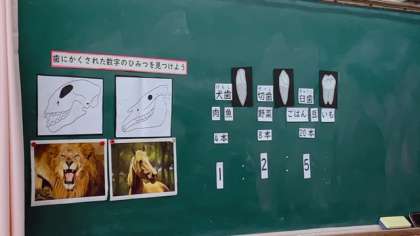 歯にかくされた数字のひみつを見つけよう
犬歯 切歯 臼歯
肉 魚 野菜 ごはん 豆 いも
4本 8本 20本
1 : 2 : 5